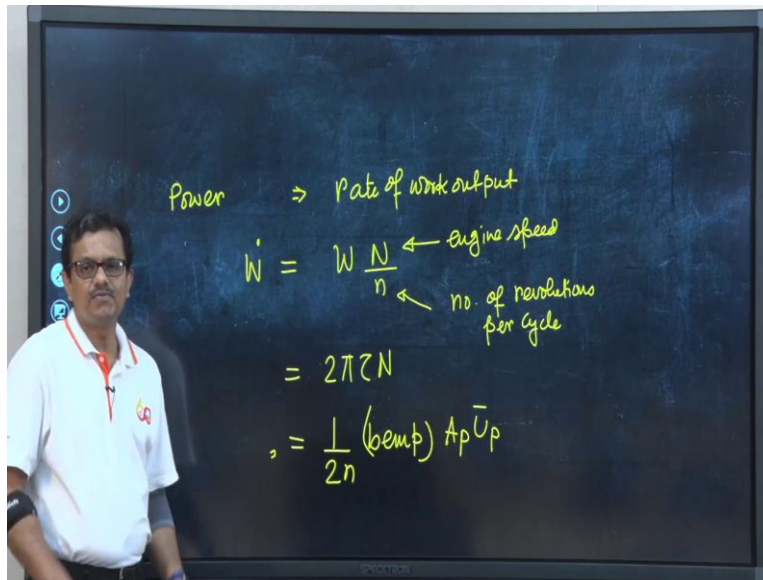 Power ⇒ rate of work output
Ẇ = W N/n ← engine speed
← no. of revolutions
per cycle
= 2πτN
, = 1/2n (bemp) Ap Ūp
SPECKTRON